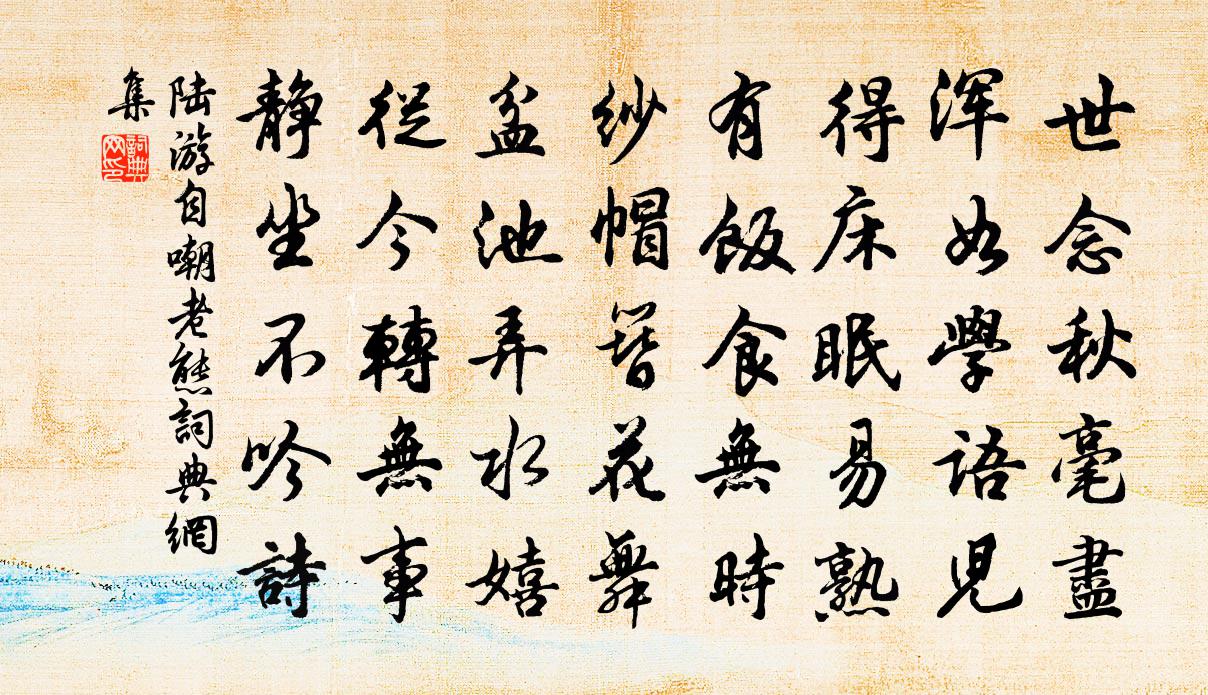 世念秋毫盡
渾如學語兒
得床眠易熟
有飯食無時
纱帽簪花舞
盆池弄水嬉
從今轉無事
静坐不吟詩
陆游自嘲老熊詞典網
集
詞典
网印